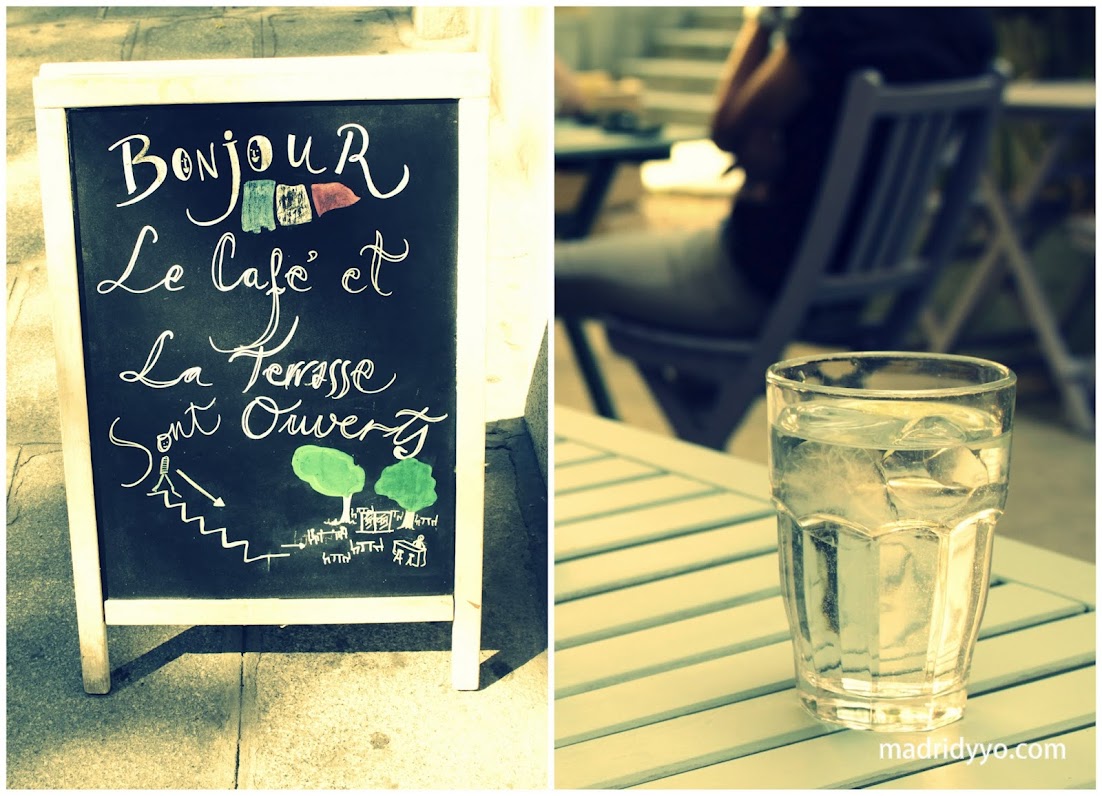 BonjouR
Le Café et
La Terrasse
Sont Ouverts
madridyyo.com